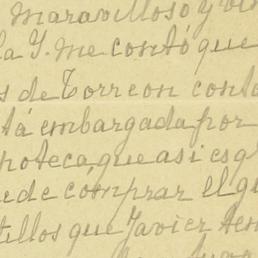 maravilloso y vin
la Y. me contó que
s de Torreon conto
tá embargada por
poteca, que asi es q
ede comprar el g
tillos que Javier ten